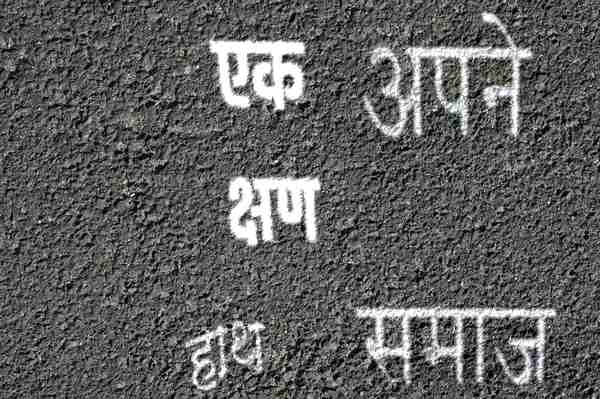 एक अपने
क्षण
हाथ समाज